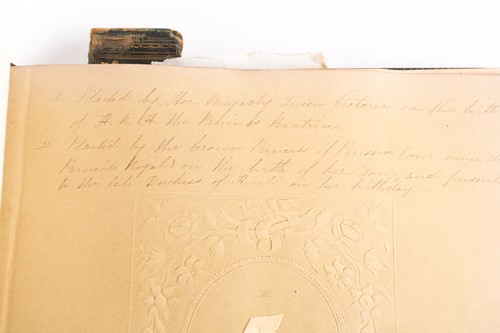 I. Plaited by Her Majesty Queen Victoria on the birth
of H. R. H. the Princess Beatrice.
II Plaited by the Crown Princess of Prussia (our own dear
Princess Royal) on the birth of her son, and presented
to the late Duchess of Kent on her birthday.